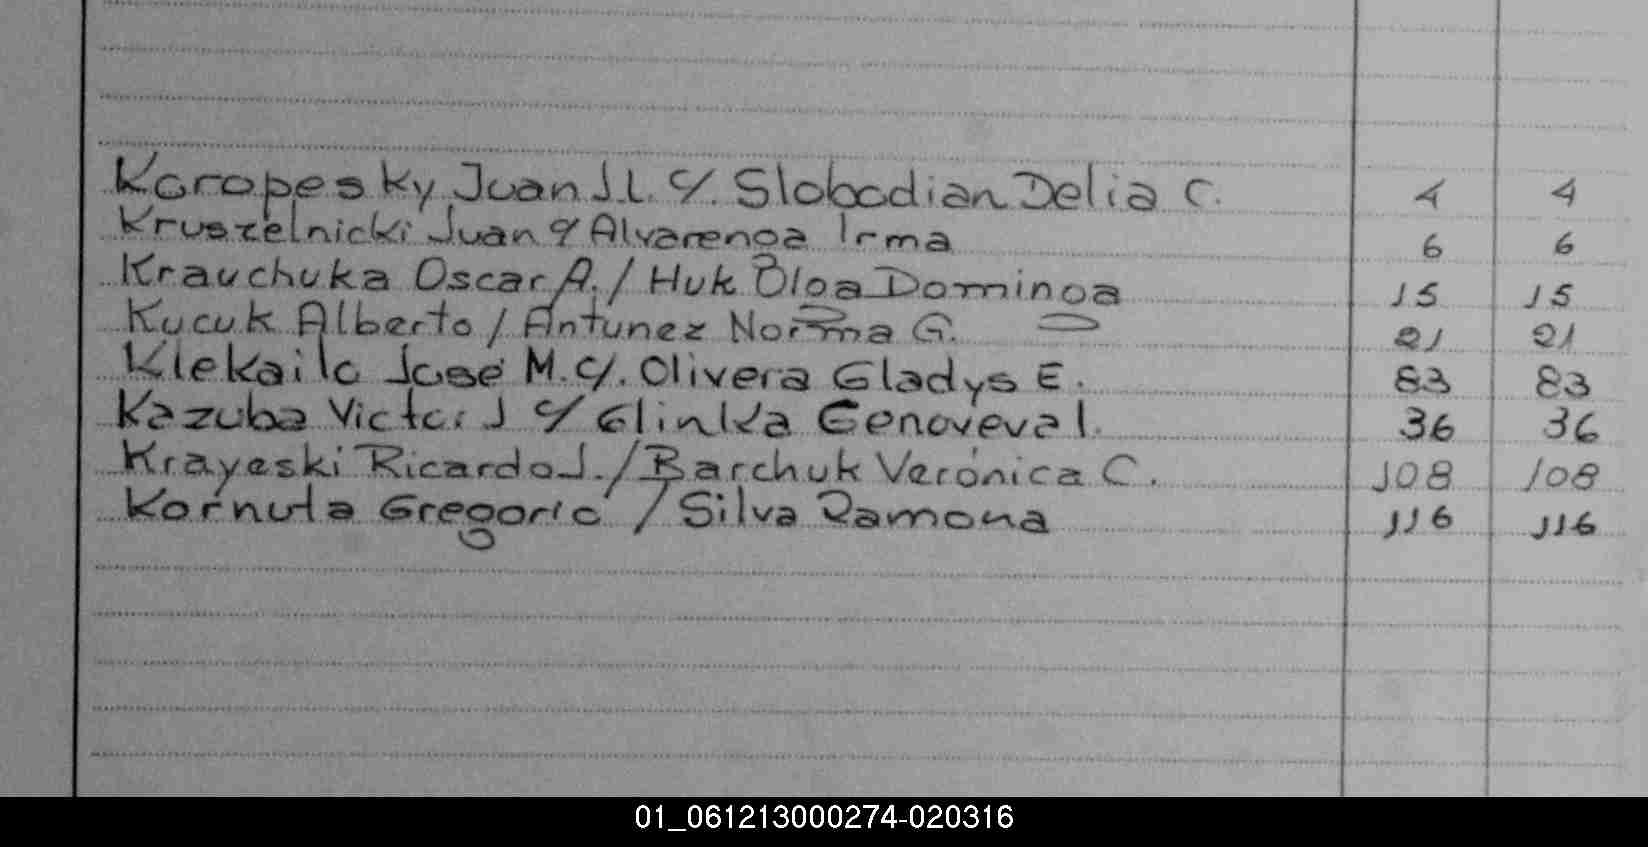 Koropesky Juan J.L. c/. Slobodian Delia C. 4 4
Kruszelnicki Juan c/ Alvarenga Irma 6 6
Krauchuka Oscar A. / Huk Olga Dominga 15 15
Kucuk Alberto / Antunez Norma G. 21 21
Klekailo José M. c/. Olivera Gladys E. 83 83
Kazuba Victor J c/ Glinka Genoveva I. 36 36
Krayeski Ricardo J. / Barchuk Verónica C. 108 108
Kornuta Gregorio / Silva Ramona 116 116
01_061213000274-020316